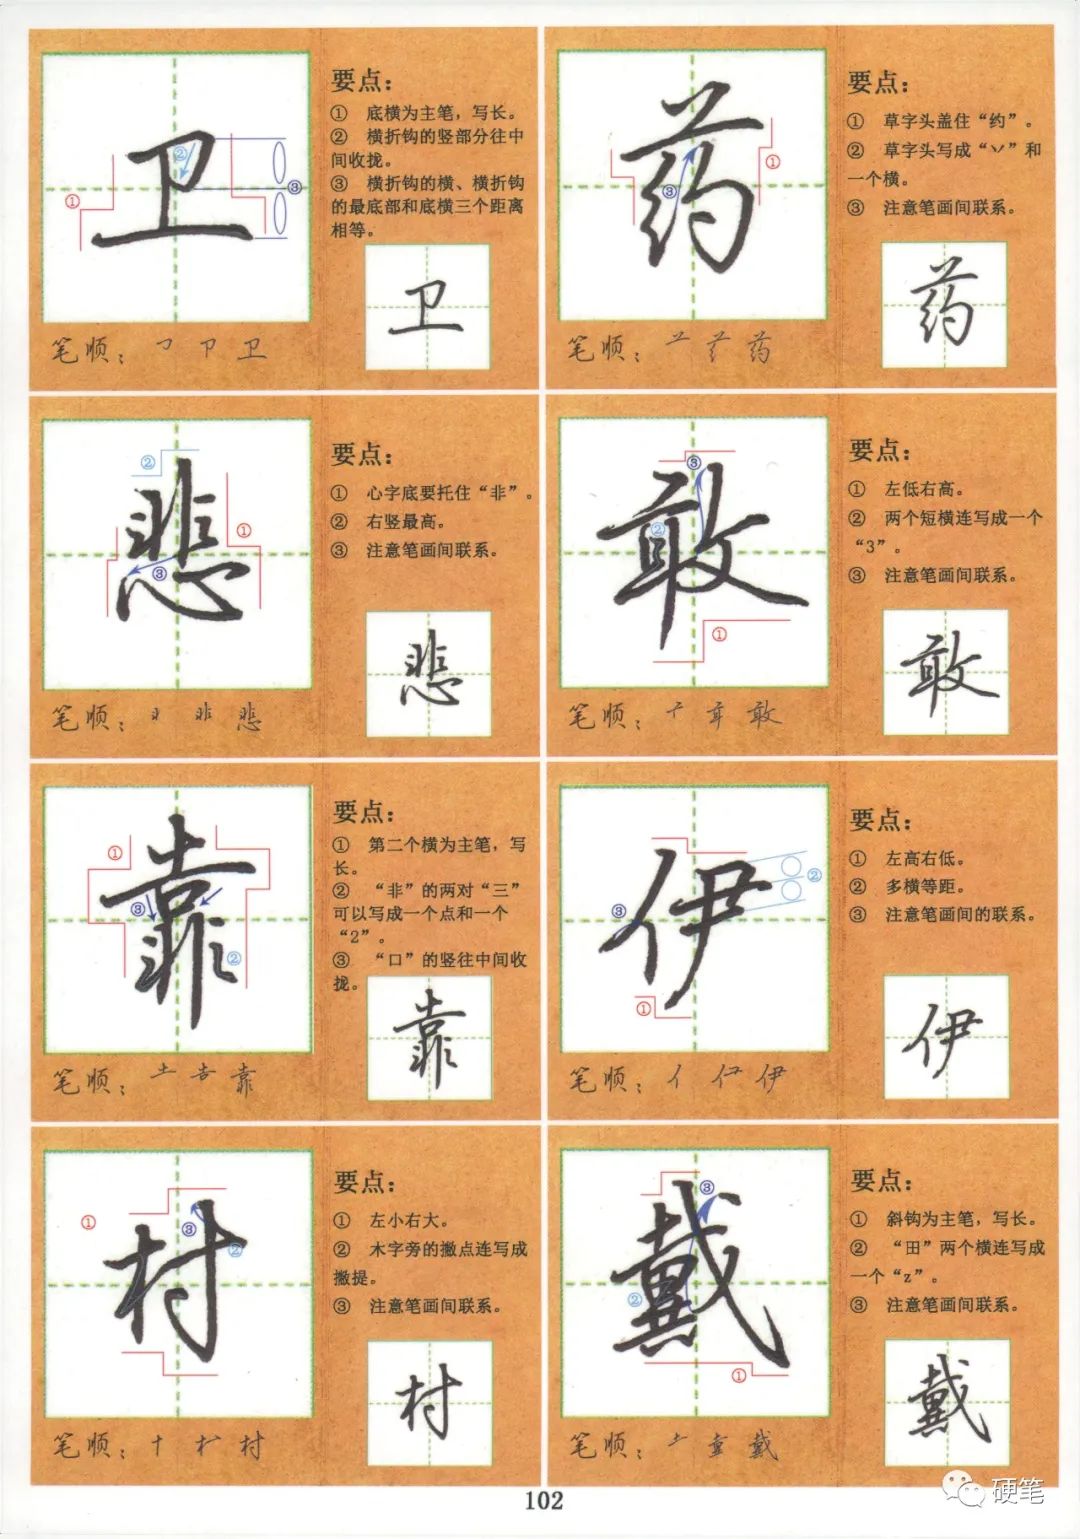 卫
要点：
① 底横为主笔，写长。
② 横折钩的竖部分往中
间收拢。
③ 横折钩的横、横折钩
的最底部和底横三个距离
相等。
① ② ③
卫
笔顺： 卫
药
要点：
① 草字头盖住“约”。
② 草字头写成“丷”和
一个横。
③ 注意笔画间联系。
① ③
药
笔顺： 药
悲
要点：
① 心字底要托住“非”。
② 右竖最高。
③ 注意笔画间联系。
② ① ③
悲
笔顺： 非 悲
敢
要点：
① 左低右高。
② 两个短横连写成一个
“3”。
③ 注意笔画间联系。
③ ② ①
敢
笔顺： 敢
靠
要点：
① 第二个横为主笔，写
长。
② “非”的两对“三”
可以写成一个点和一个
“2”。
③ “口”的竖往中间收
拢。
① ③ ②
靠
笔顺： 告 靠
伊
要点：
① 左高右低。
② 多横等距。
③ 注意笔画间的联系。
② ③ ①
伊
笔顺： 亻 伊
村
要点：
① 左小右大。
② 木字旁的撇点连写成
撇提。
③ 注意笔画间联系。
① ③ ②
村
笔顺： 十 村
戴
要点：
① 斜钩为主笔，写长。
② “田”两个横连写成
一个“z”。
③ 注意笔画间联系。
③ ② ①
戴
笔顺： 戴
102
硬笔